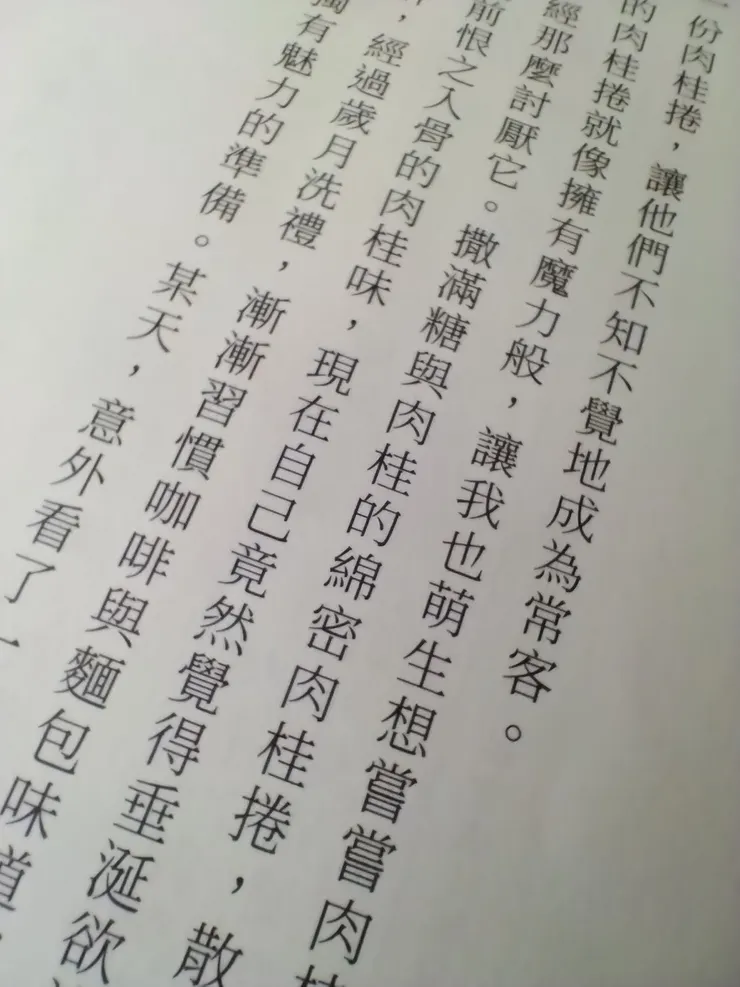 一份肉桂捲，讓他們不知不覺地成為常客。
的肉桂捲就像擁有魔力般，讓我也萌生想嘗嘗肉桂
經那麼討厭它。撒滿糖與肉桂的綿密肉桂捲，散
前恨之入骨的肉桂味，現在自己竟然覺得垂涎欲
，經過歲月洗禮，漸漸習慣咖啡與麵包味道，
獨有魅力的準備。某天，意外看了一